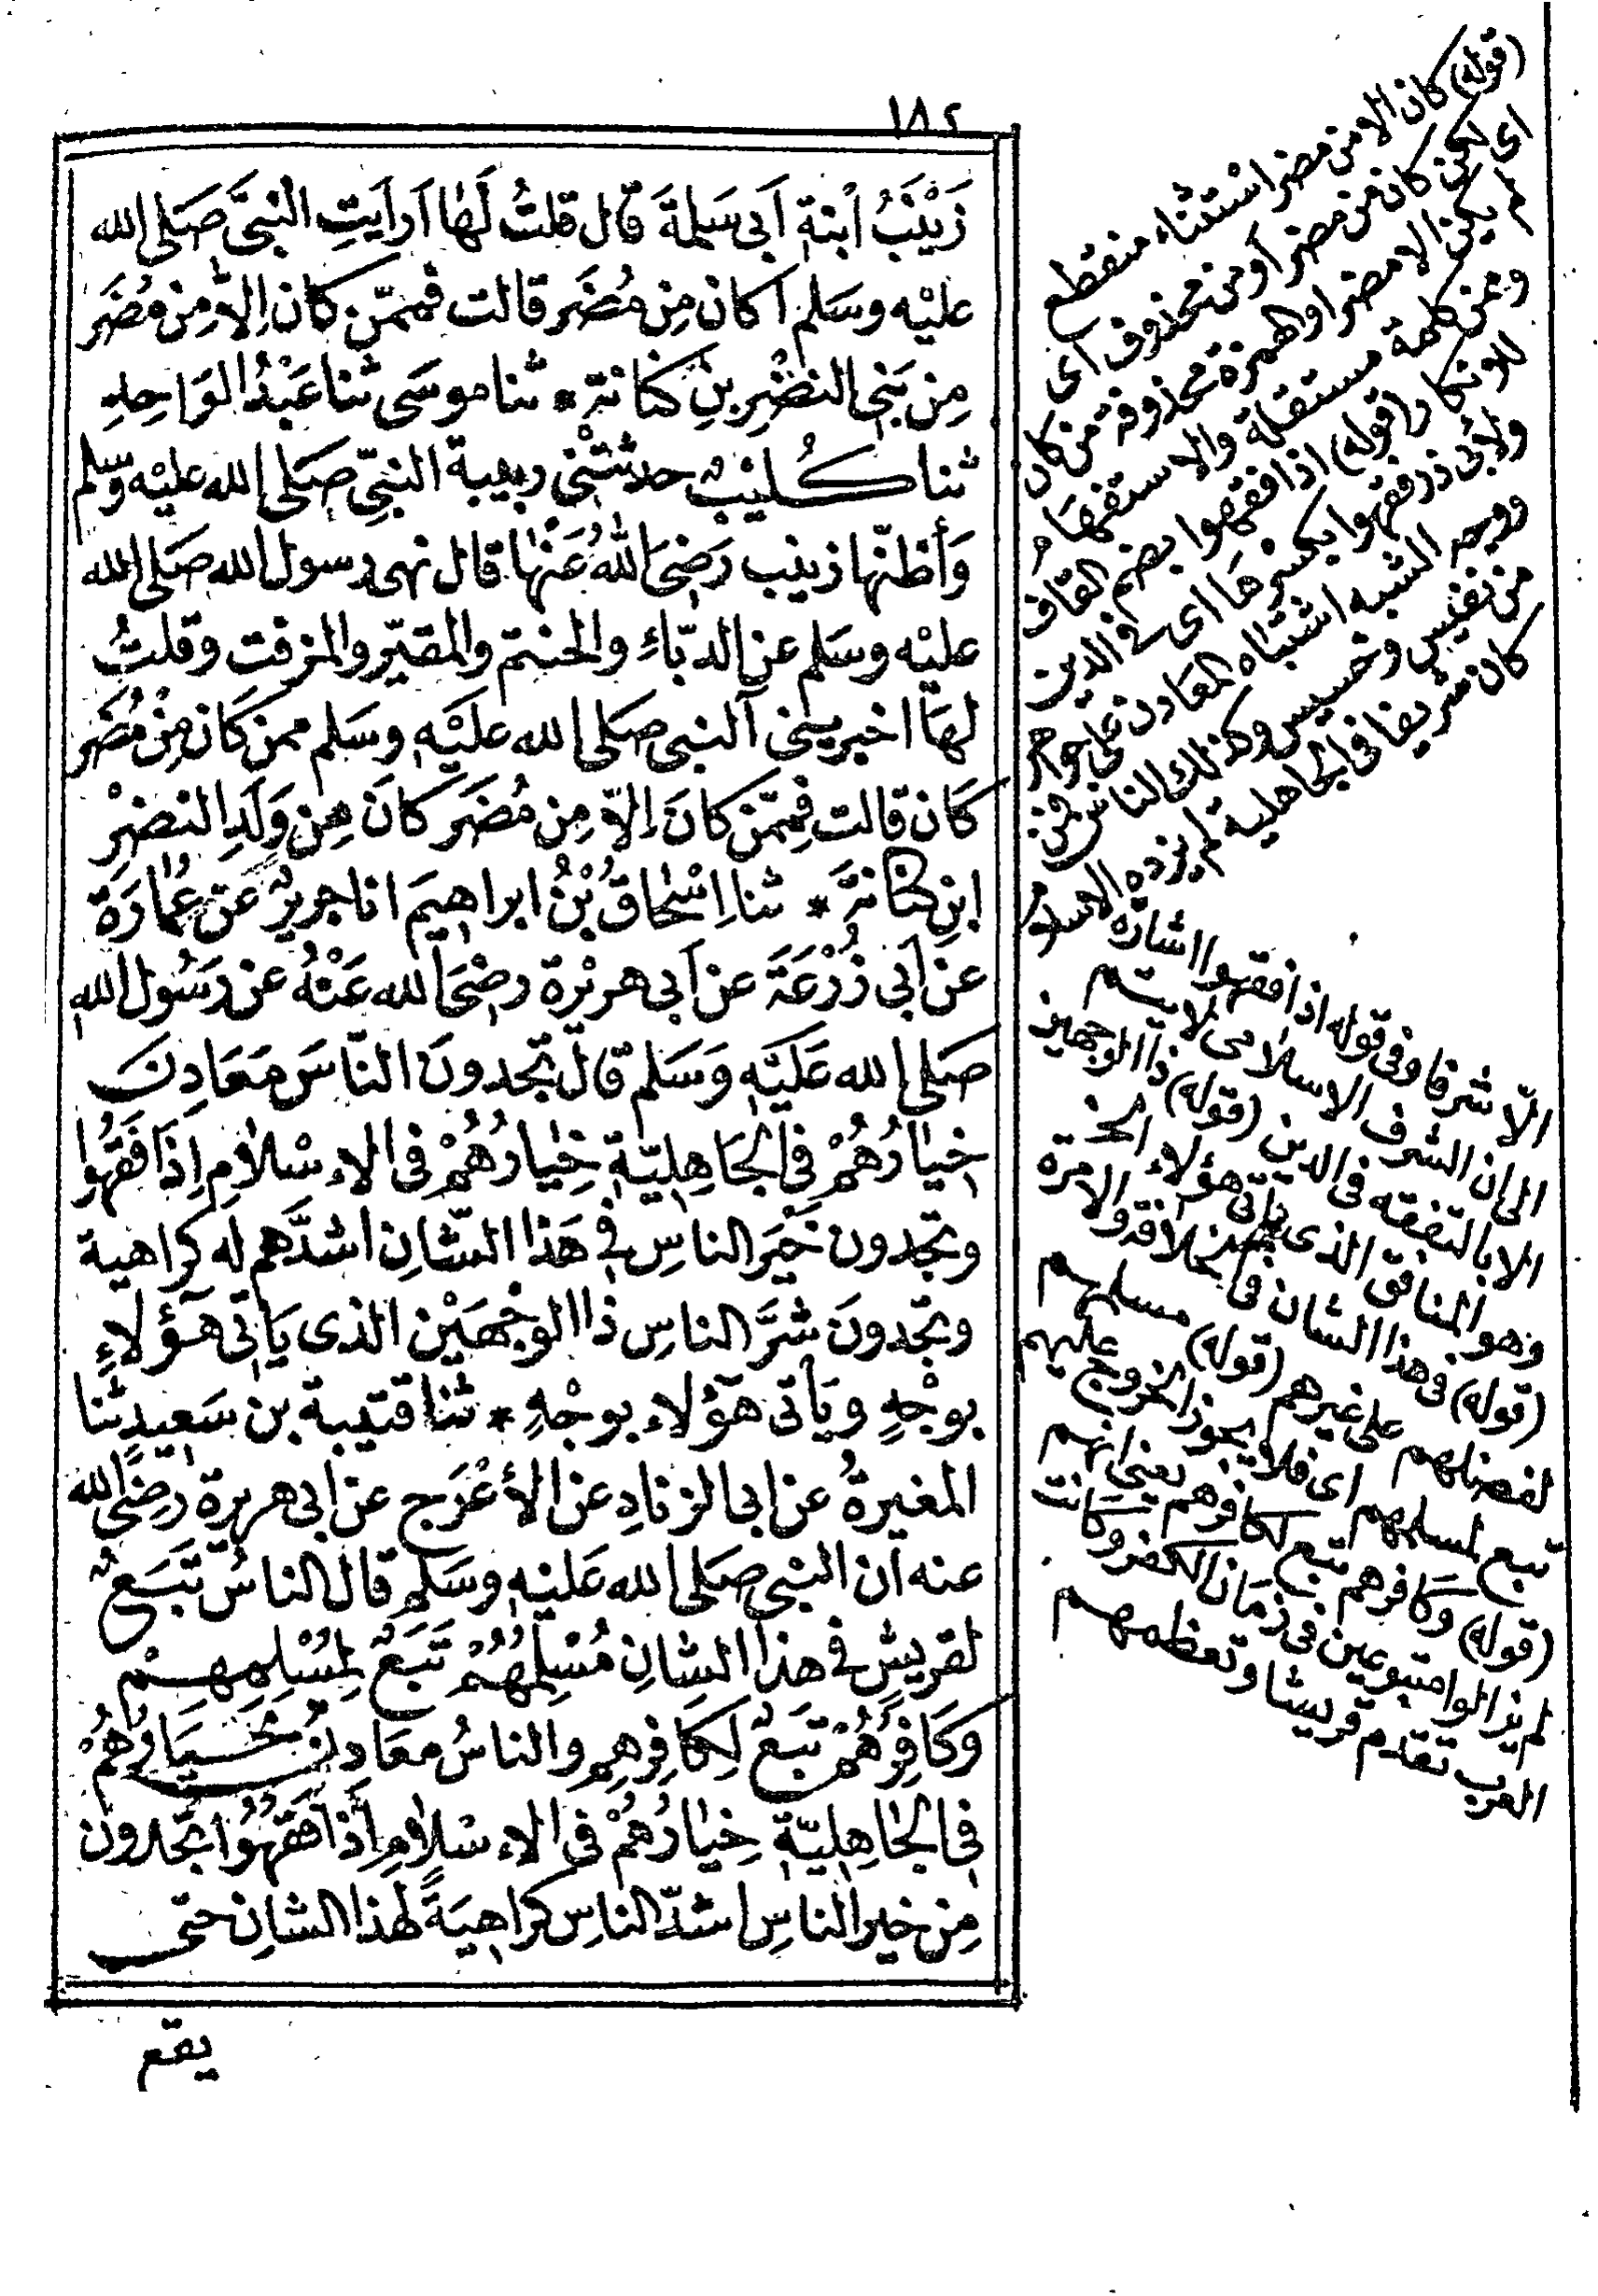 ١٨٢
زَيْنَبُ ابْنةِ اَبى سَلمةَ قال قلتُ لَهٰا اَرأيَتِ النبيَّ صَلى الله
عليْه وسَلم اكان مِن مُضَر قالت فممّن كان اِلاّ مِن مُضَر
مِن بَنى النضْرِ بنِ كنانةِ * ثنا موسَى ثنا عَبْدُ الوَاحِدِ
ثنا كُلَيْبٌ حدثتْنى ربيبة النبيِّ صَلى الله عليْه وسلم
وَأظنّها زينب رَضِىَ اللهُ عَنْهٰا قال نهى رسول الله صَلى الله
عليْه وسَلم عن الدبّاءِ والحنتم والمقيّر والمزفت وقلتُ
لهَا اخبرينى آلنبى صَلى الله عليَْه وسَلم ممن كَان مِنْ مُضَر
كَان قالت فمِمّن كانَ اِلاّ مِن مُضَر كانَ مِن وَلَدِ النضْرِ
ابنِ كنانةَ * ثنا اِسْحٰاقُ بْنُ ابراهيمَ انا جريرٌ عَن عُمارَة
عن اَبي زُرْعَةَ عن اَبى هريْرة رضىَ الله عَنْهُ عن رَسُول الله
صَلى الله عَليَْه وَسَلم قال تجدونَ النّاسَ مَعَادِنَ
خِيٰارُهُمْ فِى الجَاهِليّةِ خِيٰارُهُمْ فى الاءسْلامِ اِذَا فَقَهُوا
وتجدون خَيْرَ الناسِ فِى هَذا الشّانِ اشدَّهم له كراهية
وتجدونَ شرَّ الناسِ ذا الوجْهَيْن الذى يَاتى هَؤلاءِ
بوجْهٍ ويَأتى هؤلاء بوجْهٍ * ثنا قتيبة بن سَعيدٍ ثنا
المغيرةُ عن ابى الزنادِ عن الأعْرَج عن ابى هريرة رضِىَ الله
عنه ان النبى صَلى الله عَليْه وسَلم قال الناسُ تَبَعٌ
لقريشٍ فى هذا الشانِ مُسْلِمُهُمْ تَبَعٌ لِمُسْلِمِهِمْ
وكَافِرُهُمْ تَبَعٌ لِكَافِرِهِم والناسُ معَادِنُ خِيَارُهُمْ
فى الجٰاهِليّةِ خِيٰارُهُمْ فى الاءسْلامِ اِذا فَقَهُوا تجدون
مِن خيرِ الناسِ اشدّ الناسِ كراهِيَةً لهذا الشانِ حتى
يقع
(قوله) كان الا من مضر استثناء منقطع
اى لكن كان من مضر او من محذوف اى
لم يكن الا مضر او الهمزة محذوفة من كان
وممن كلمة مستقلة والاستفهام
للانكار (قوله) اذا فقهوا بضم القاف
ولابى ذر فقهوا بكسرها اى فى الدين
ووجه الشبه اشتباه المعادن على جواهر
من نفيس وخسيس وكذلك الناس فمن
كان شريفا فى الجاهلية لم يزده الاسلام
الاّ شرفا وفى قوله اذا فقهوا اشارة
الى ان الشرف الاسلامى لا يتم
الا بالتفقه فى الدين (قوله) ذا الوجهين
وهو المنافق الذى ياتى هؤلاء الخ
(قوله) فى هذا الشان فى الخلافة والامرة
لفضلهم على غيرهم (قوله) مسلمهم
تبع لمسلمهم اى فلا يجوز الخروج عليهم
(قوله) وكافرهم تبع لكافرهم يعنى انهم
لم يزالوا متبوعين فى زمان الكفر وكانت
العرب تقدم قريشا وتعظمهم